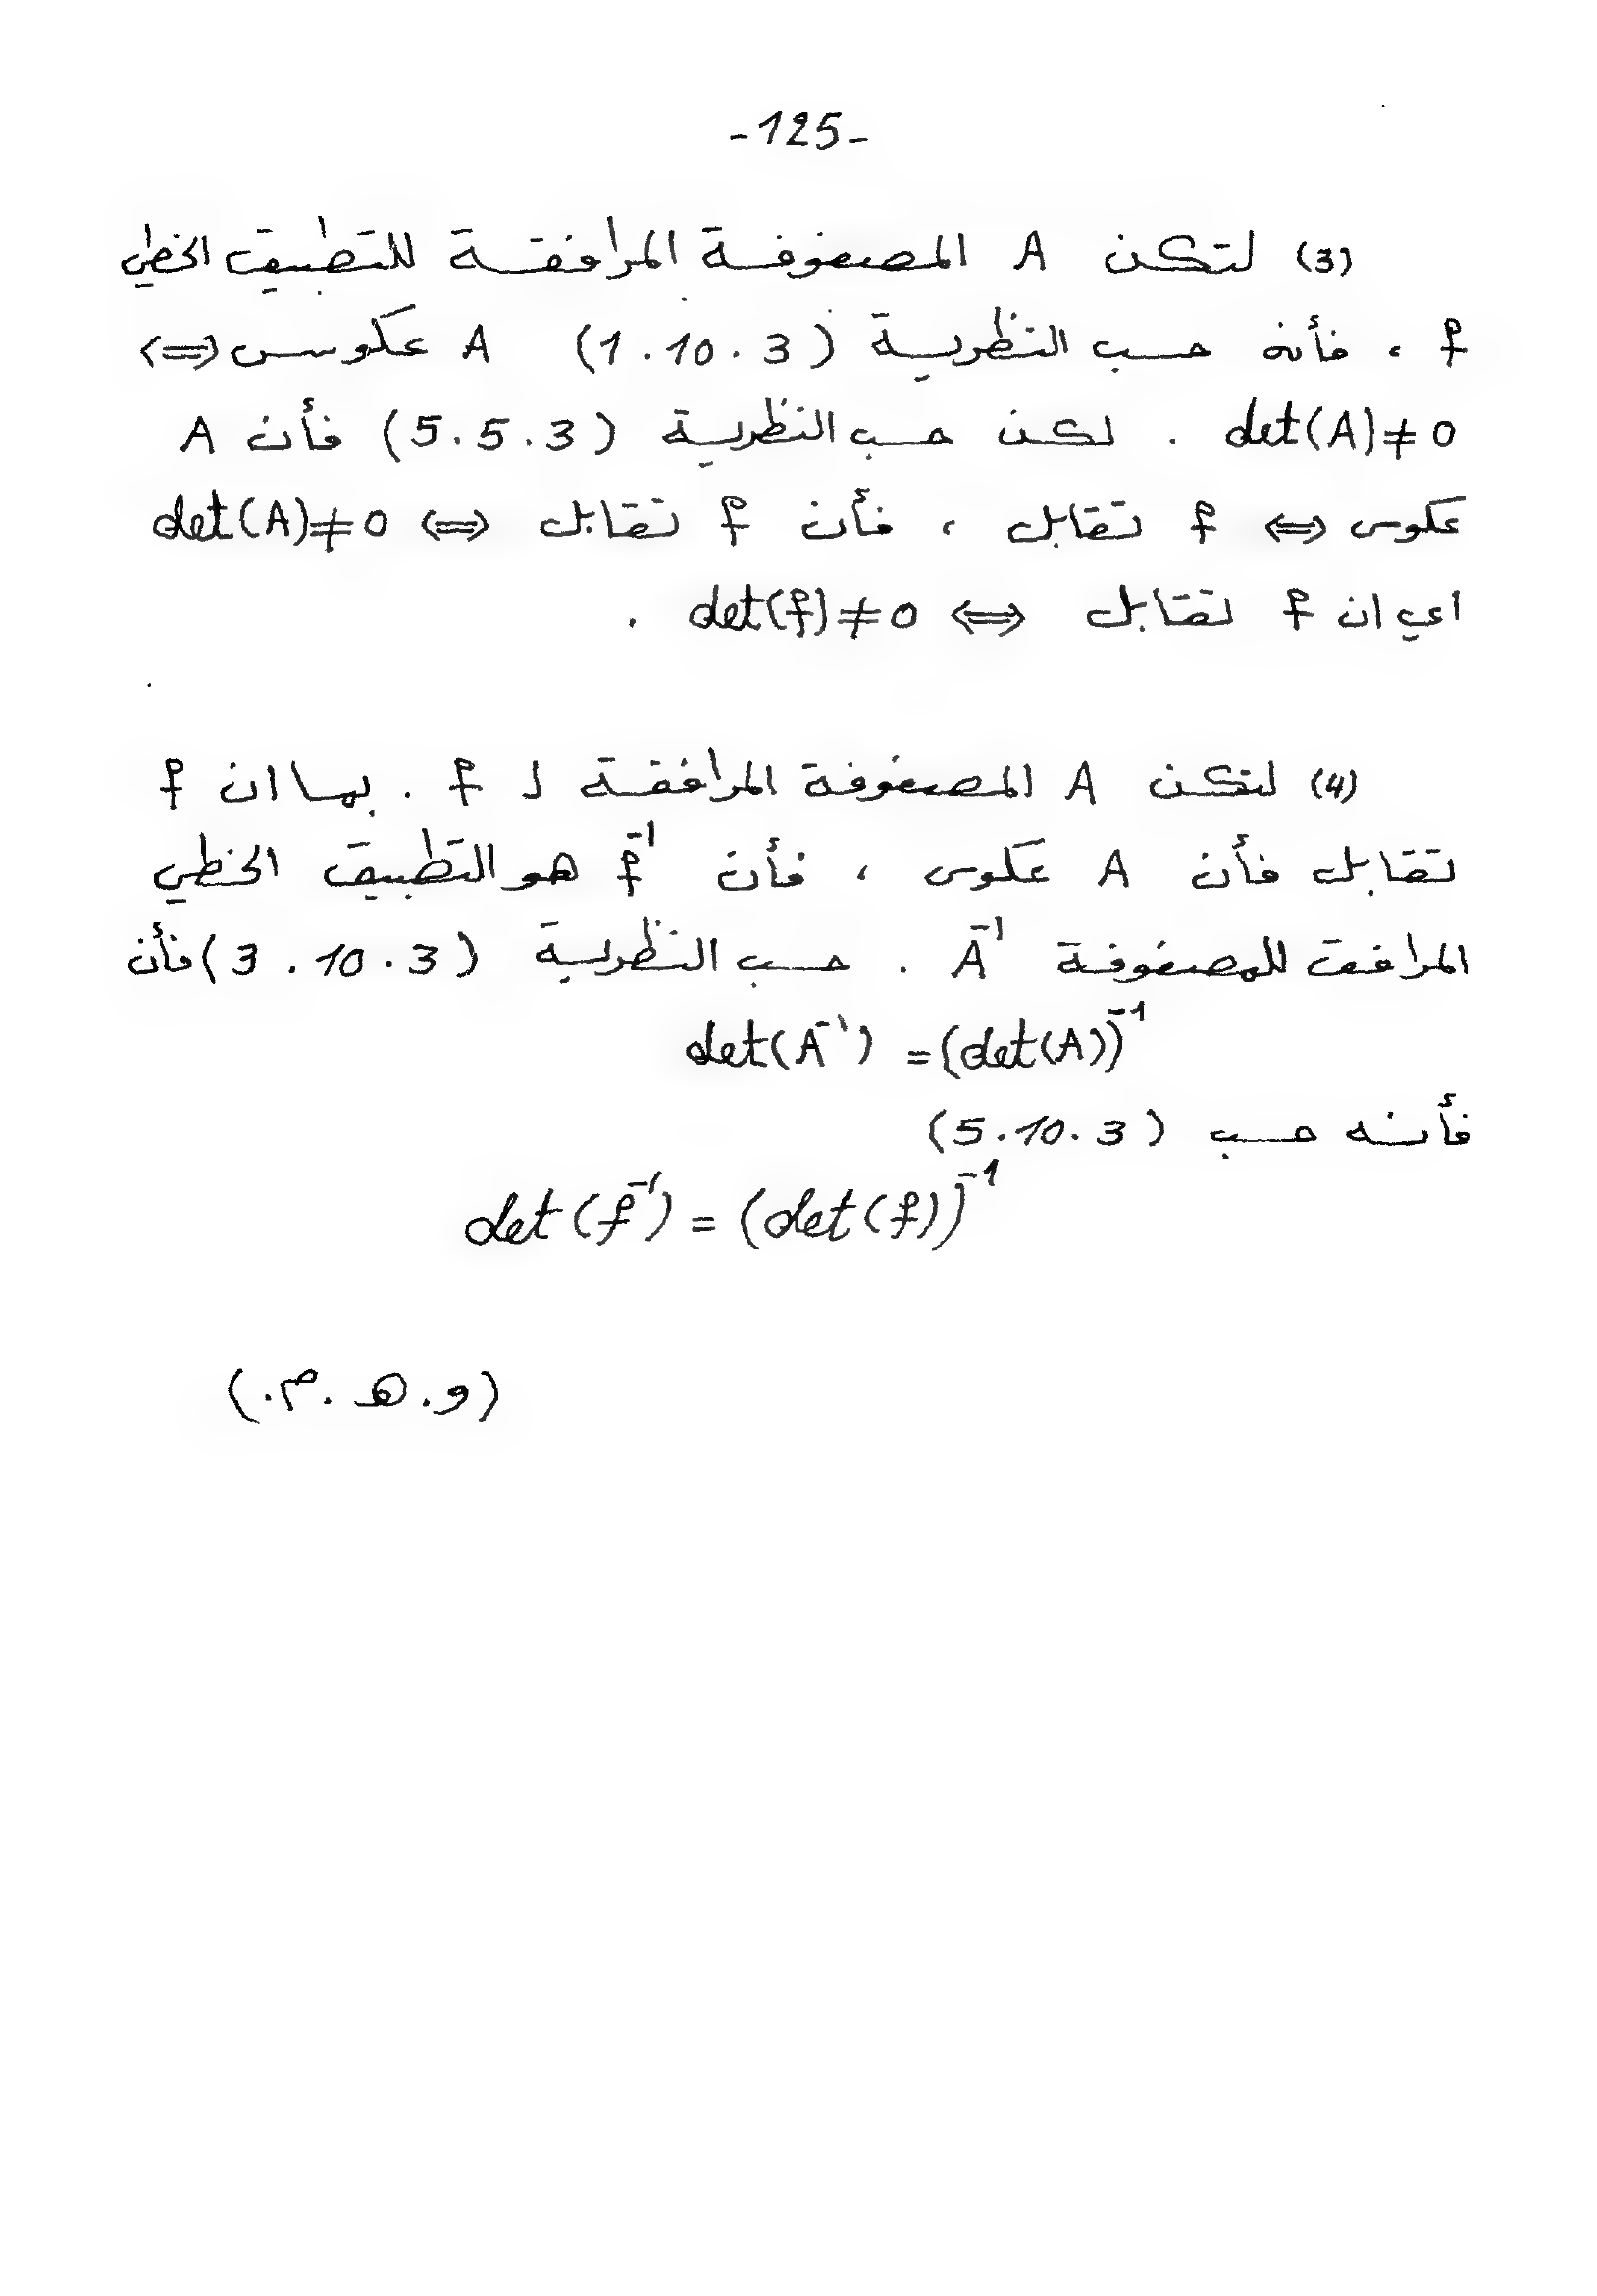 -125-
(3) لتكن A المصفوفة المرافقة للتطبيق الخطي
f ، فأنه حسب النظرية (1.10.3) A عكوس ⇔
det(A)≠0 . لكن حسب النظرية (5.5.3) فأن A
عكوس ⇔ f تقابل ، فأن f تقابل ⇔ det(A)≠0
اي ان f تقابل ⇔ det(f)≠0 .
(4) لتكن A المصفوفة المرافقة ل f . بما ان f
تقابل فأن A عكوس ، فأن f⁻¹ هو التطبيق الخطي
المرافق للمصفوفة A⁻¹ . حسب النظرية (3.10.3) فأن
det(A⁻¹) = (det(A))⁻¹
فأنه حسب (5.10.3)
det(f⁻¹) = (det(f))⁻¹
(و.ه.م.)